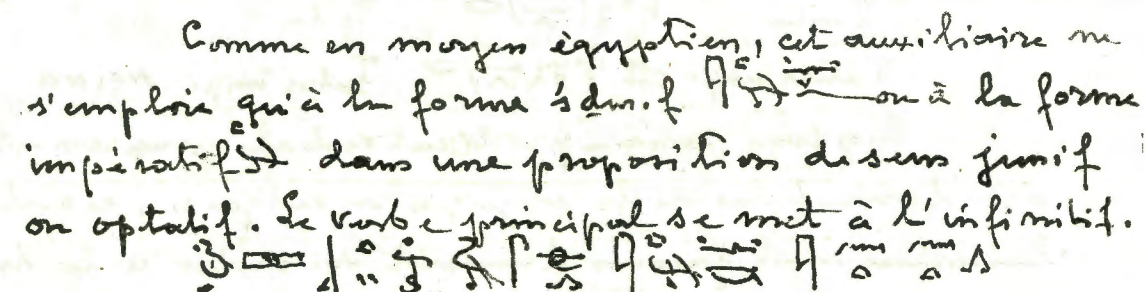 Comme en moyen égyptien, cet auxiliaire ne
s'emploie qu'à la forme śḏm.f ou à la forme
impératif dans une proposition de sens jussif
ou optatif. Le verbe principal se met à l'infinitif.